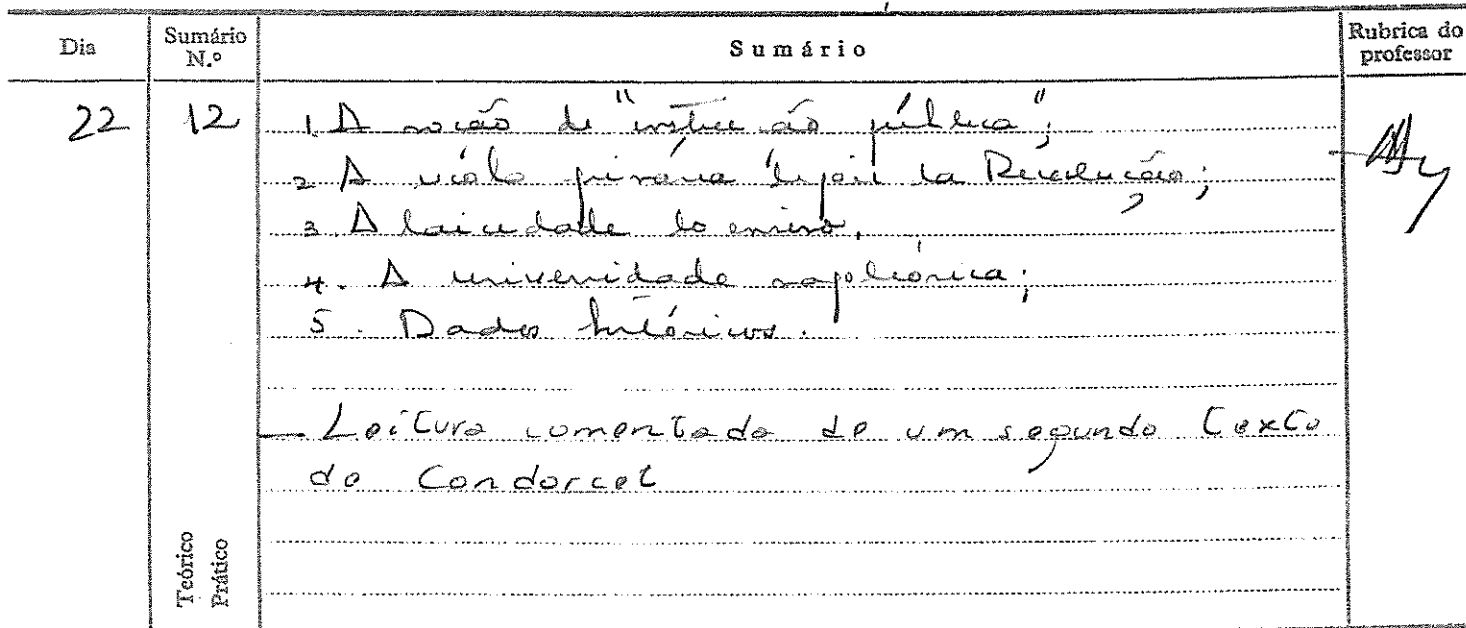 Dia
Sumário N.º
Sumário
Rubrica do professor
22
12
1. A noção de "instrução pública";
2 A escola primária depois da Revolução;
3. A laicidade do ensino.
4. A universidade napoleónica;
5. Dados históricos.
— Leitura comentada de um segundo texto
de Condorcet
Teórico
Prático